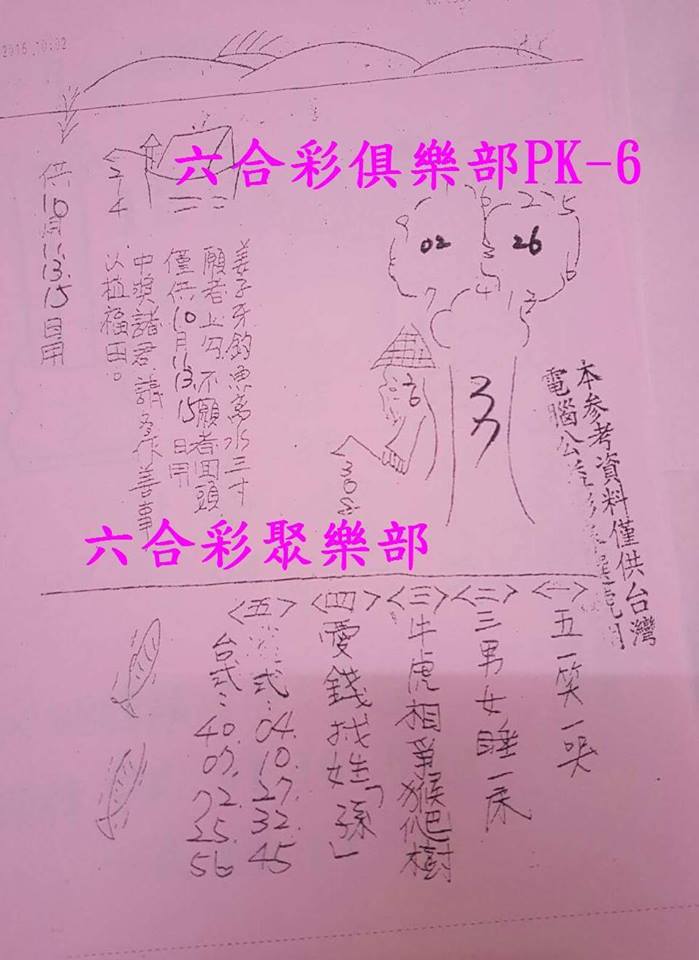 2016 10:02
六合彩俱樂部PK-6
02
26
6
2
5
6
7
4
1
2
6
308
24
本參考資料僅供台灣
電腦公益彩
姜子牙釣魚離水三寸
願者上勾,不願者回頭
僅供10月11.13.15日用
中獎諸君請多作善事
以植福田。
供10月11.13.15日用
六合彩聚樂部
<一>五一笑一哭
<二>三男女睡一床
<三>牛虎相爭猴爬樹
<四>愛錢找姓「孫」
<五>式:04.10.27.32.45
台式:40.07.72.25.56